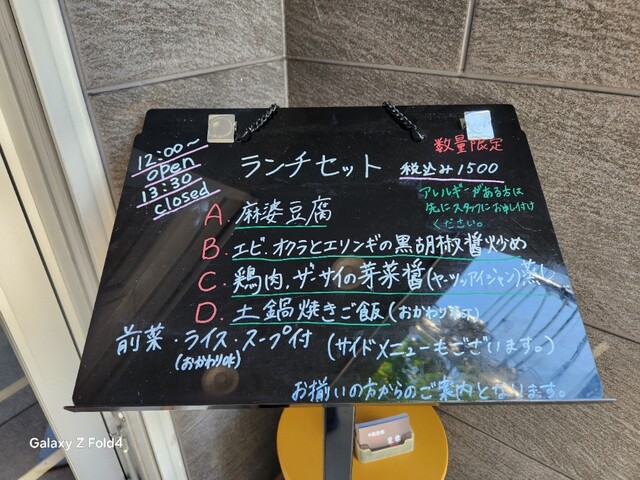 12:00～
open
13:30
closed
数量限定
ランチセット 税込み1500
アレルギーがある方は
先にスタッフにお申し付け
ください。
A. 麻婆豆腐
B. エビ、オクラとエリンギの黒胡椒醤炒め
C. 鶏肉、ザーサイの芽菜醤(ヤーツァイジャン)蒸し
D. 土鍋焼きご飯(おかわり
前菜・ライス・スープ付 (サイドメニューもございます。)
(おかわり
お揃いの方からのご案内となります。
Galaxy Z Fold4